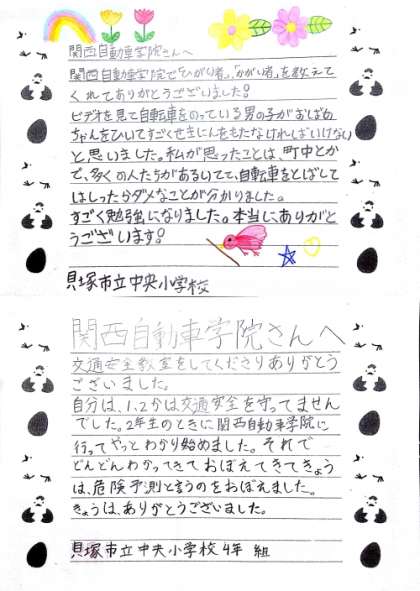 関西自動車学院さんへ
関西自動車学院で「ひがい者」、「かがい者」を教えて
くれてありがとうございました!
ビデオを見て自転車をのっている男の子がおばあ
ちゃんをひいてすごくせきにんをもたなければいけない
と思いました。私が思ったことは、町中とか
で、多くの人たちがあるいてて、自転車をとばして
はしったらダメなことが分かりました。
すごく勉強になりました。本当に、ありがと
うございます!
貝塚市立中央小学校
関西自動車学院さんへ
交通安全教室をしてくださりありがとう
ございました。
自分は、1、2かは交通安全を守ってません
でした。2年生のときに関西自動車学院に
行ってやっとわかり始めました。それで
どんどんわかってきておぼえてきてきょう
は、危険予測と言うのをおぼえました。
きょうは、ありがとうございました。
貝塚市立中央小学校4年 組